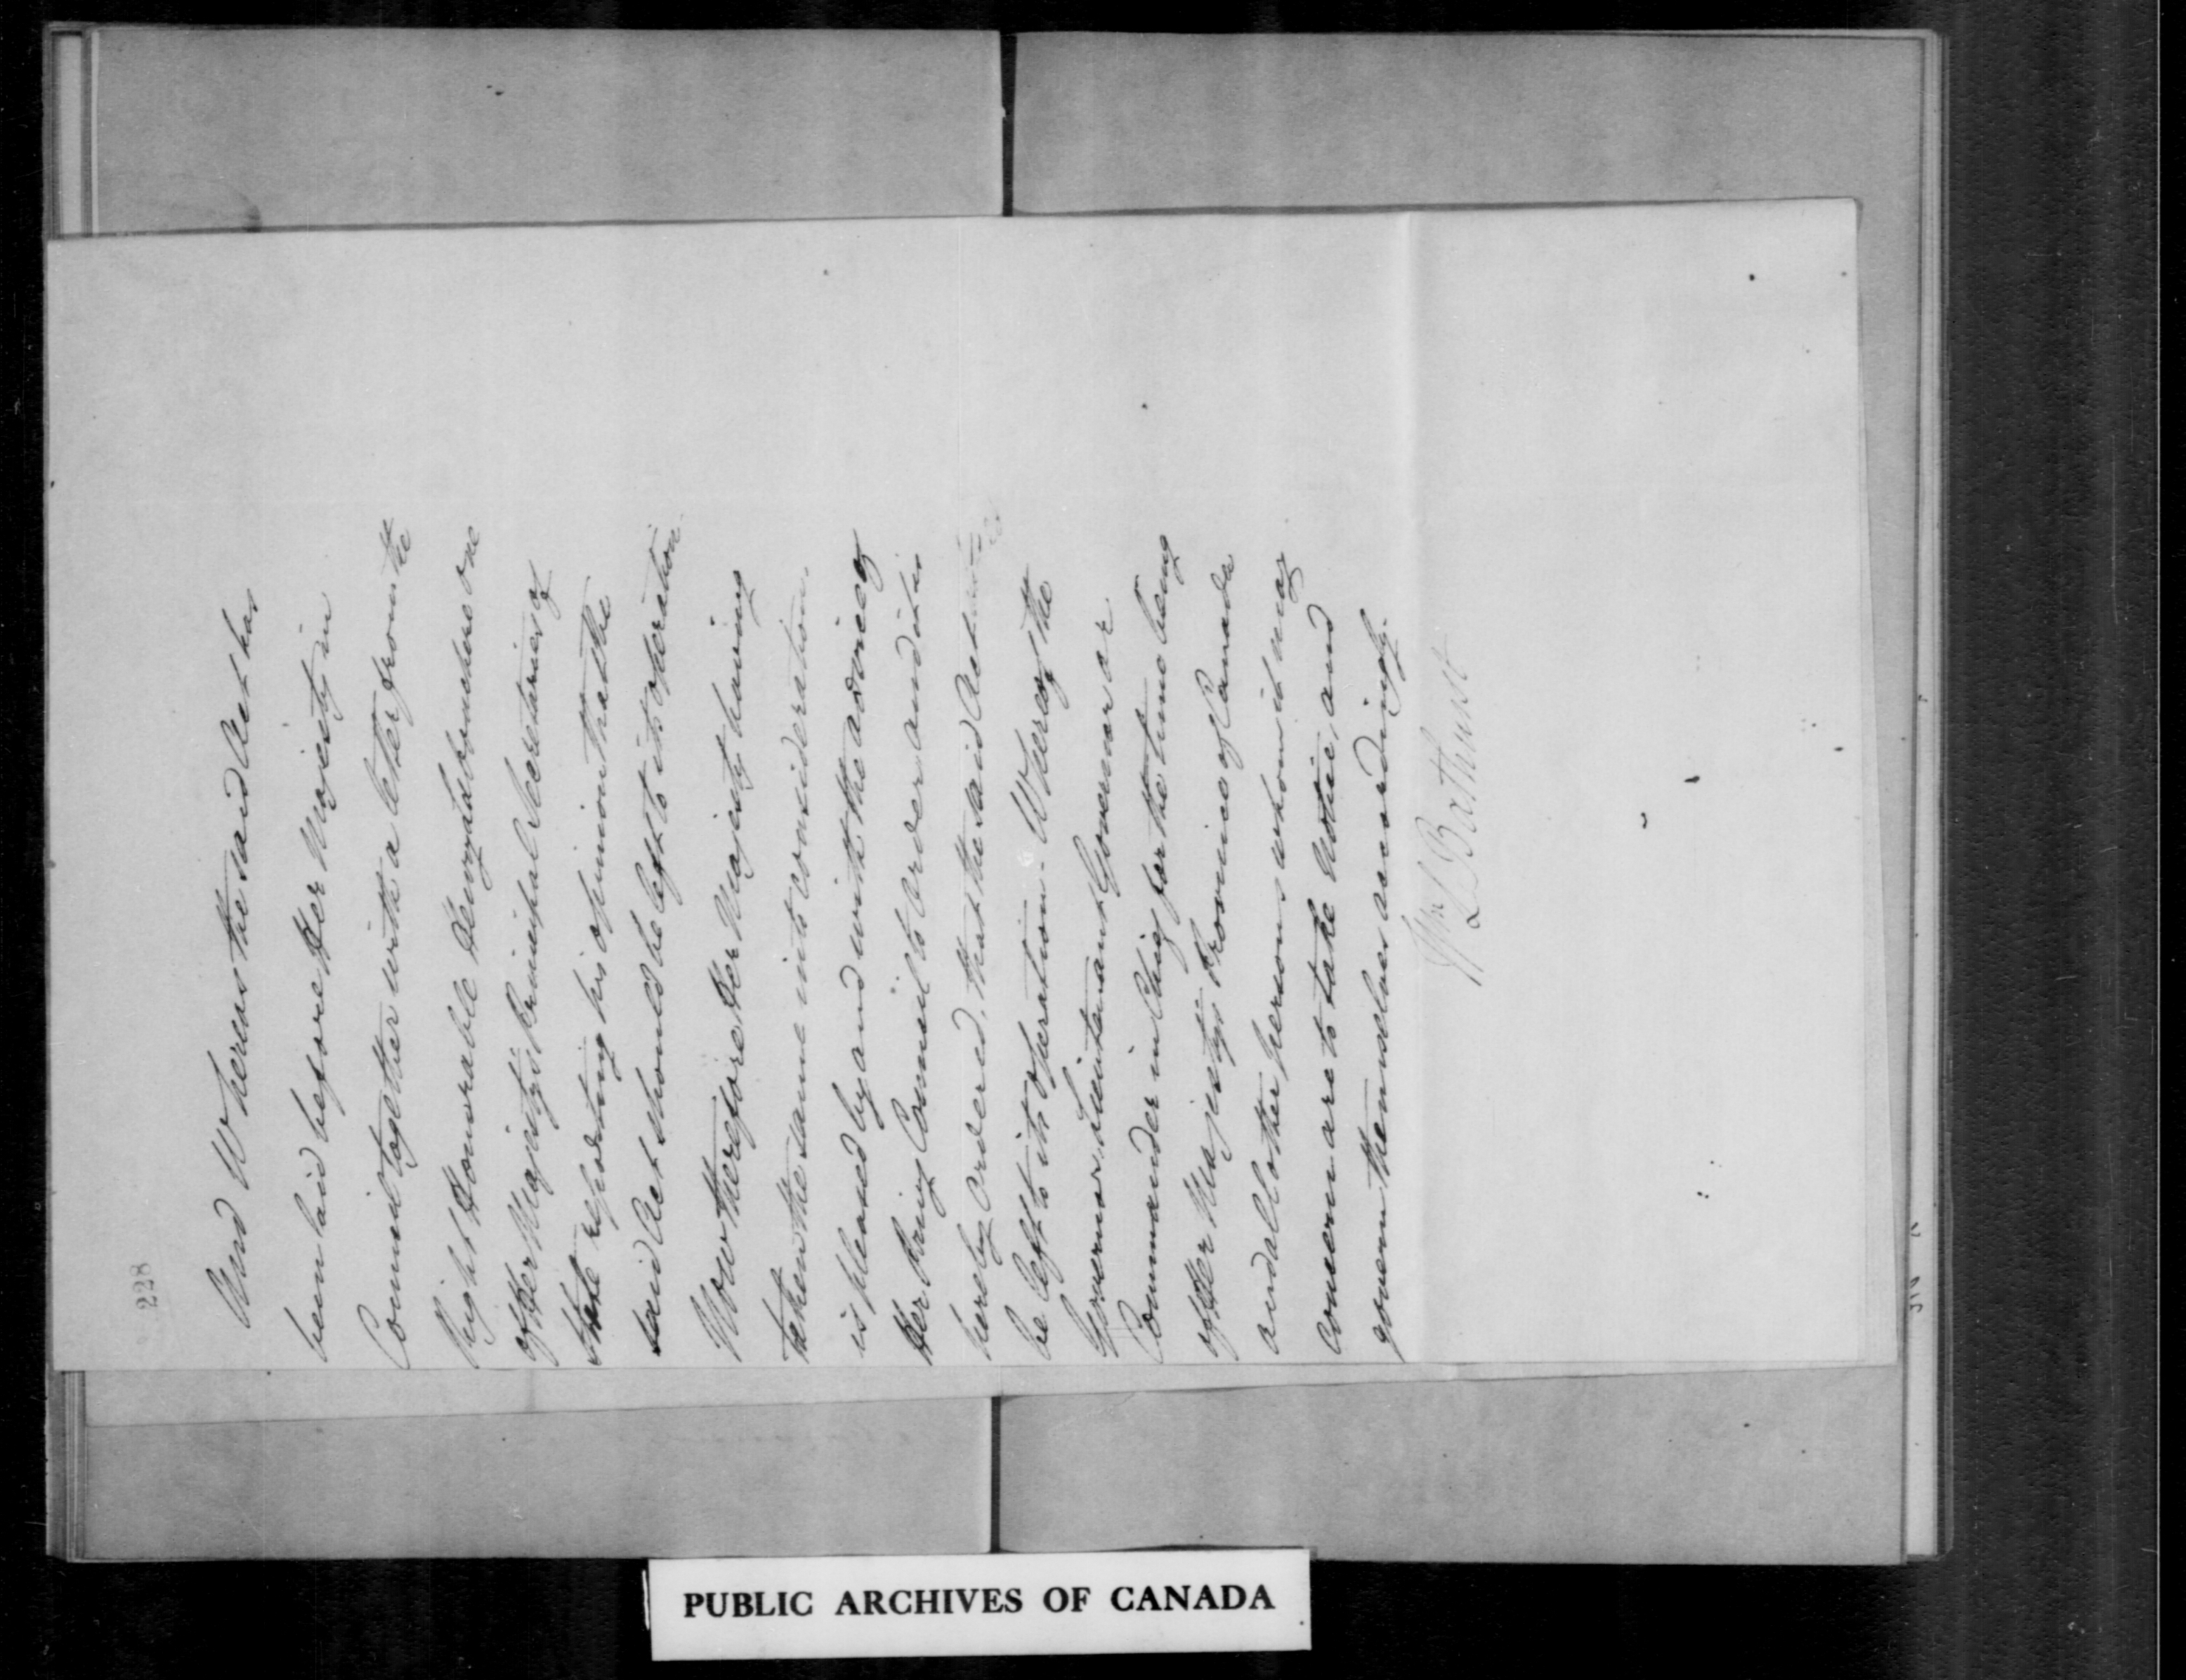 228
And Whereas the said Act has
been laid before Her Majesty in
Council together with a letter from the
Right Honorable Henry Labouchere One
of Her Majesty's Principal Secretaries of
State reporting his opinion that the
said Act should be left to its operation.
Now therefore Her Majesty having
taken the same into consideration,
is pleased by and with the advice of
Her Privy Council to Order and it is
hereby Ordered, that the said Act
be left to its operation. Whereof the
Governor, Lieutenant Governor or
Commander in Chief for the time being
of Her Majesty's Province of Canada
and all other persons whom it may
concern are to take Notice, and
govern themselves accordingly.
Wm L Bathurst
PUBLIC ARCHIVES OF CANADA